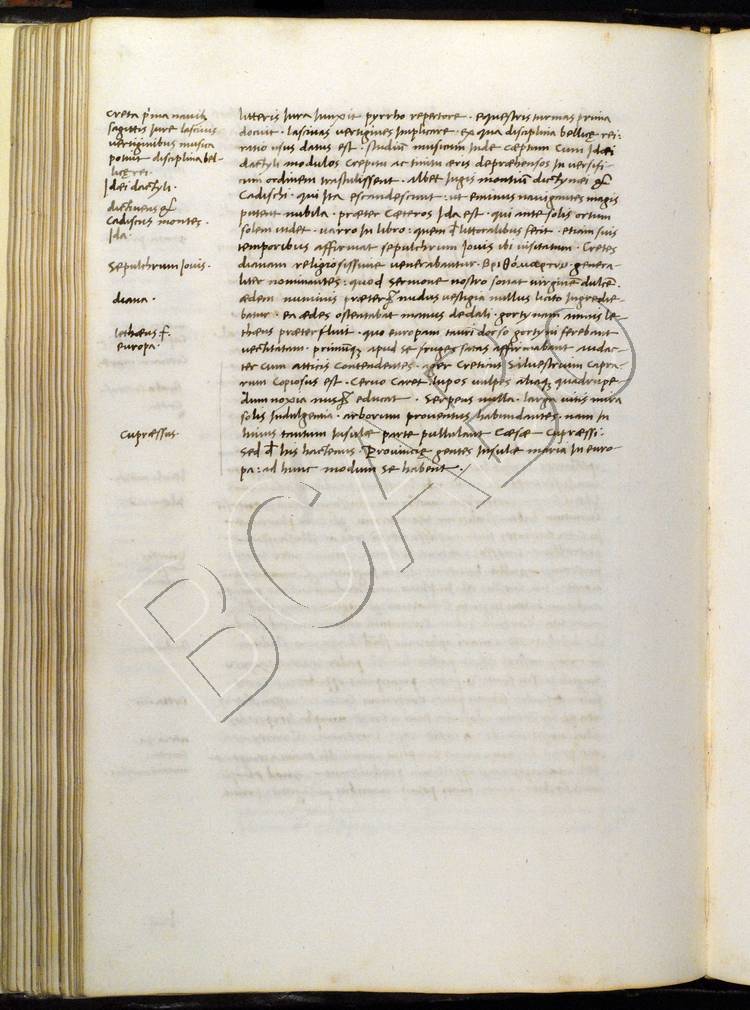 Creta prima navib.
sagittis Jure lascivis
vertiginibus musica
potuit disciplina bel-
lice rei.
Idei dactyli.
dictineus &
Cadiscus montes.
Ida.
Sepulchrum Jovis.
diana.
lethæus f.
europa.
Cupræssus
litteris Jura Junxit pyrrho repertore. equestris turmas prima
docuit. lascivas vertigines Implicare. ex qua disciplina bellicę rei:
ratio usus datus est. studiũ musicum Inde cæptum Cum Idæi
dactyli modulos Crepitu ac tinitu æris depræhensos In versifi-
cum ordinem trastulissent. Albet Jugis montiũ dictynæi &
Cadischi. qui Ita excandescunt: ut eminus navigantes magis
putent nubila. præter Cæteros Ida est. qui ante solis ortum
solem videt. varro In libro: quem littoralibus fecit. etiam suis
temporibus affirmat sepulchrum Jovis ibi visitatum. Cretes
dianam religiosissime venerabantur. genera-
liter nominantes: quod sermone nostro sonat virginẽ dulcẽ.
ædem numinis præter nudus vestigia nullus licito Ingredie-
batur. ea ædes ostentabat manus dedali. gortynam amnis le-
thæus præterfluit. quo europam tauri dorso gortyni ferebant
vectitatam. apud se fruges satas affirmabant audac-
ter cum atticis Contendentes. ager Creticus Silvestrium Capra-
rum Copiosus est. Cervo Caret: lupos vulpes aliaq; quadrupe-
dum noxia nusq̃ educat. Serpens nulla. larga vitis mira
solis Indulgentia. arborum proventus habundantes. nam In
huius tantum Insulæ parte pullulant Cæsæ Cupræssi.
Sed his hactenus. Provincię gentes Insulæ maria In euro-
pa: ad hunc modum se habent./
BCABO